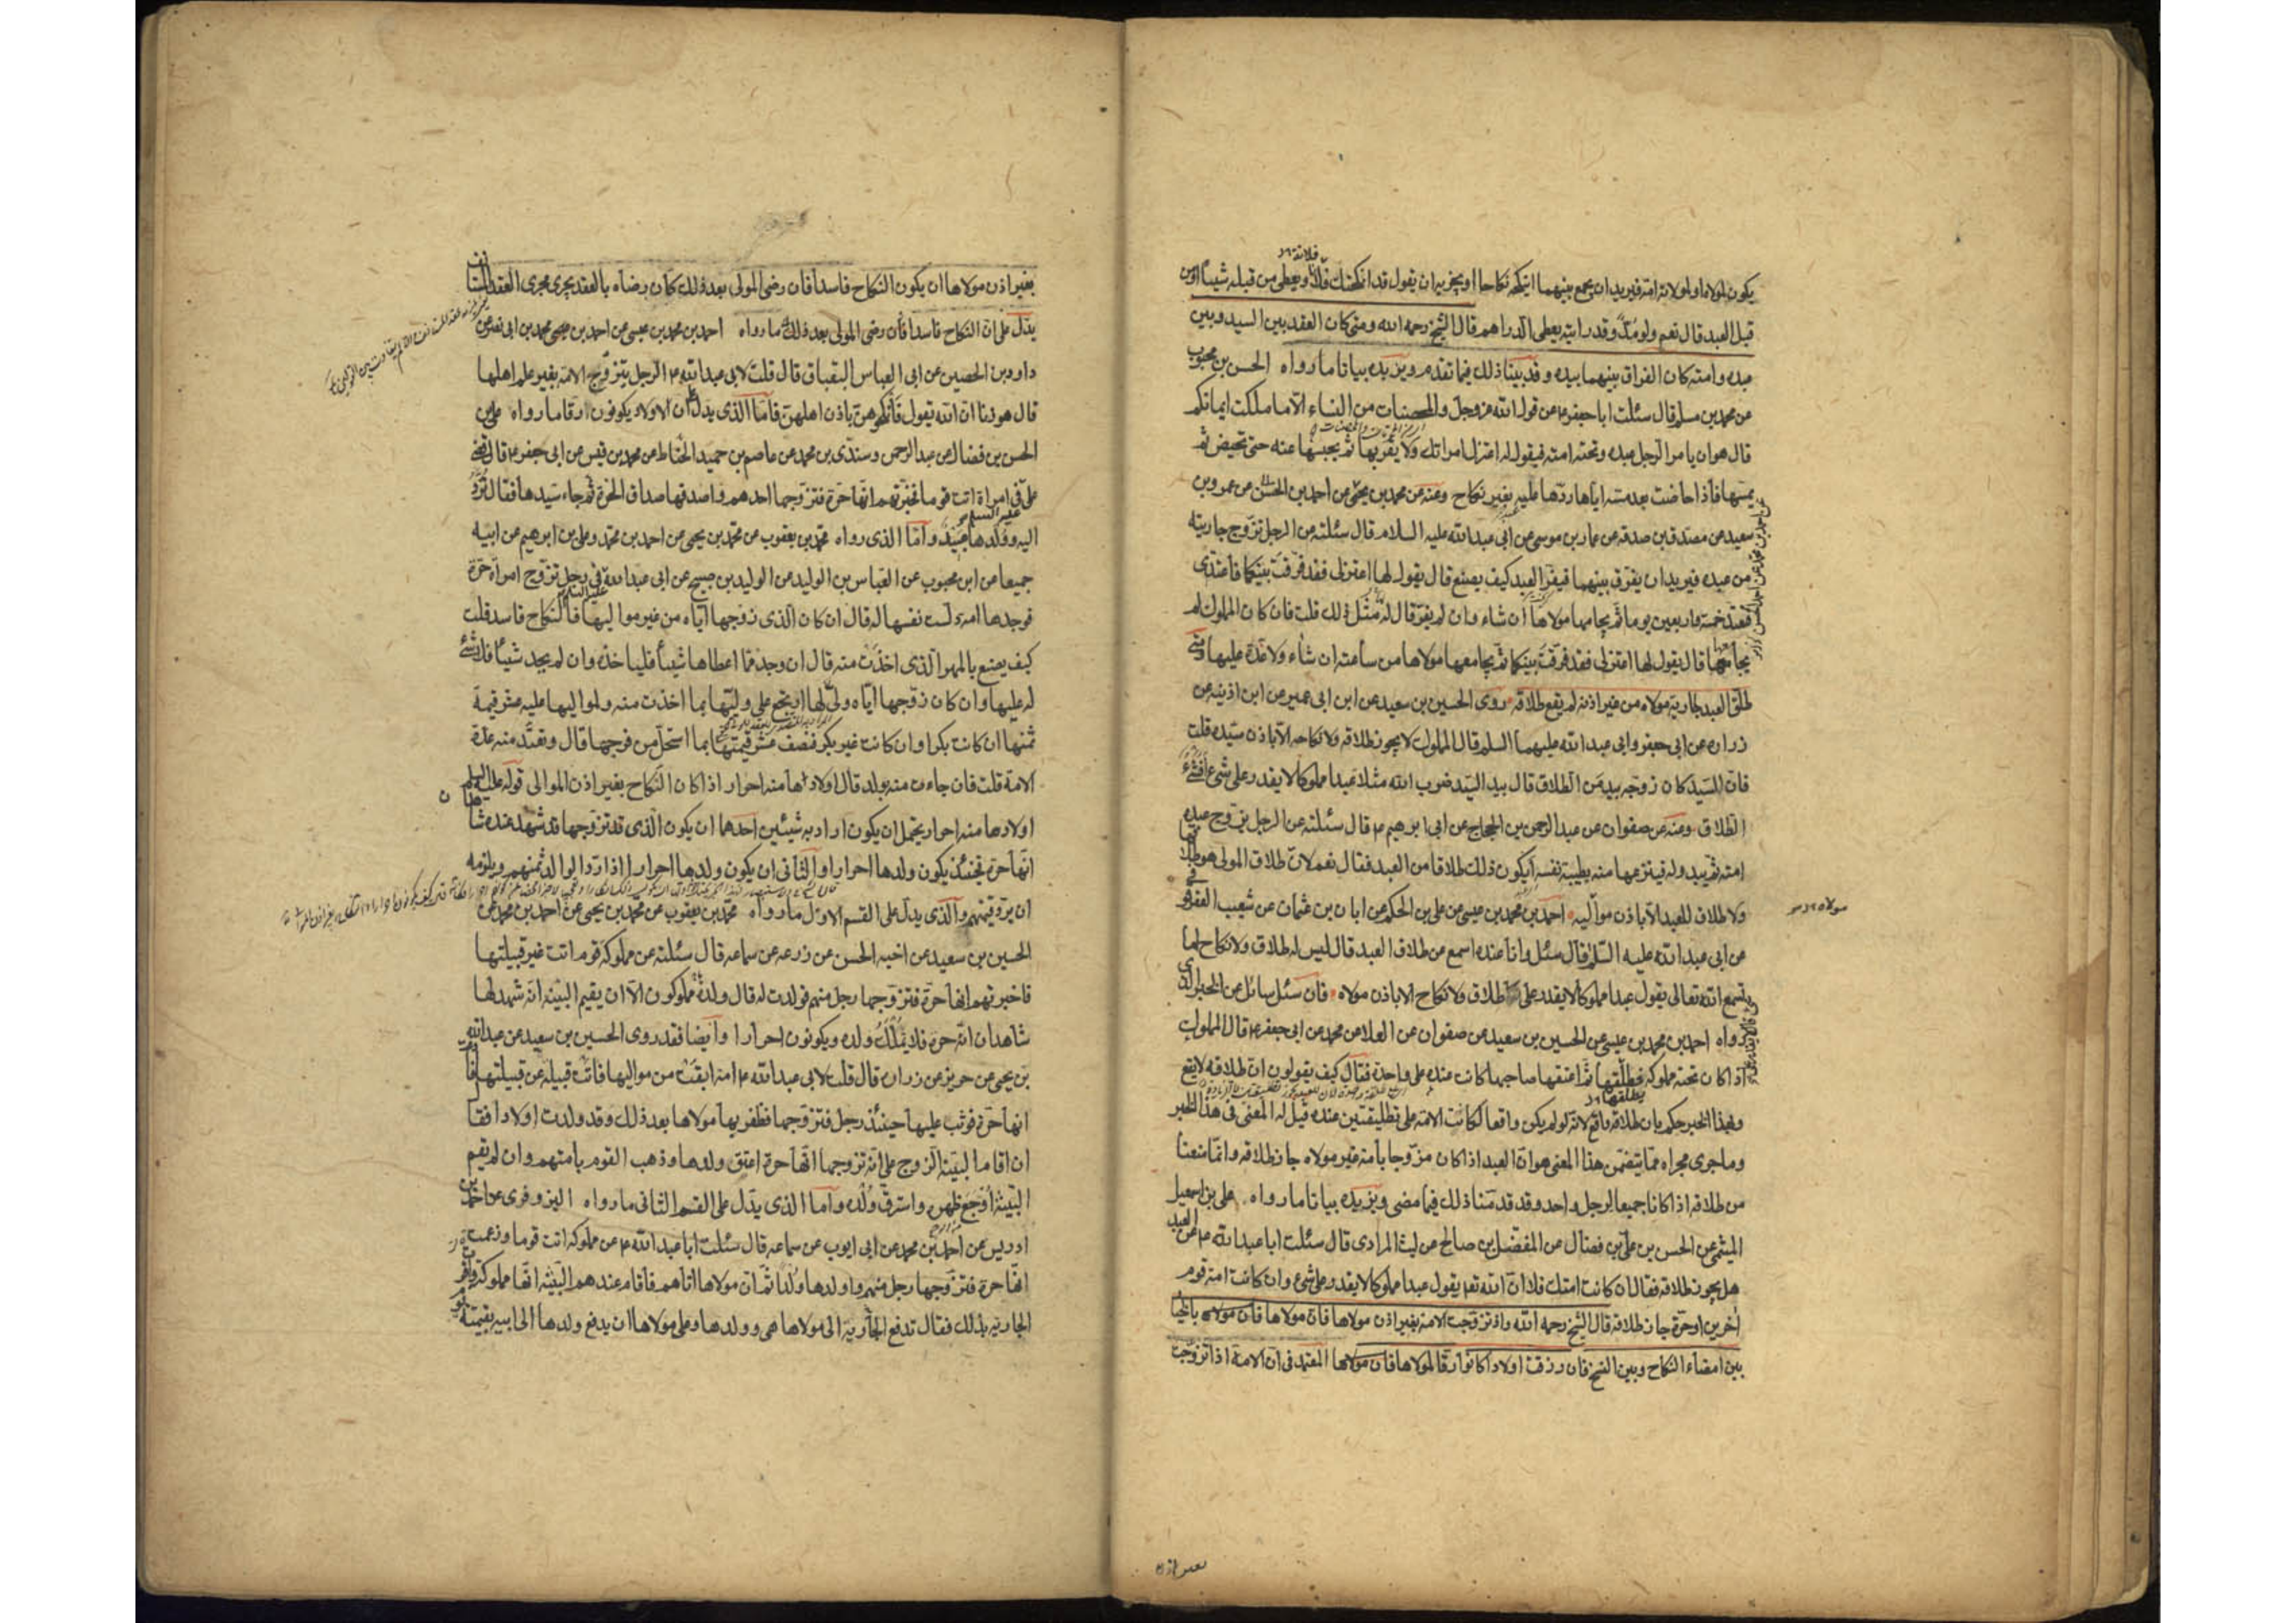 فلانة
يكون لمولاه او لمولاته امته فيريد ان يجمع بينهما اينكحه نكاحا او يجزيه ان يقول قد انكحتك فلانا ويعطى من قبله شيئا او من
قبل العبد قال نعم ولو مدا وقد رايته يعطى الدراهم قال الشيخ رحمه الله ومتى كان العقد بين السيد وبين
عبده وامته كان الفراق بينهما بيده وقد بينا ذلك فيما تقدم ويزيده بيانا ما رواه الحسن بن محبوب
عن محمد بن مسلم قال سئلت ابا جعفر ع عن قول الله عز وجل والمحصنات من النساء الا ما ملكت ايمانكم
قال هو ان يامر الرجل عبده وتحته امته فيقول له اعتزل امراتك ولا تقربها ثم يحبسها عنه حتى تحيض ثم
يمسها فاذا حاضت بعد مسه اياها ردها عليه بغير نكاح وعنه عن محمد بن يحيى عن احمد بن الحسن عن عمرو بن
سعيد عن مصدق بن صدقه عن عمار بن موسى عن ابى عبدالله عليه السلام قال سئلته عن الرجل تزوج جاريته
من عبده فيريد ان يفرق بينهما فيفر العبد كيف يصنع قال يقول لها اعتزلى فقد فرقت بينكما فاعتدى
فتعتد خمسة واربعين يوما ثم يجامعها مولاها ان شاء وان لم يفر قال له مثل ذلك قلت فان كان المملوك لم
يجامعها قال يقول لها اعتزلى فقد فرقت بينكما ثم يجامعها مولاها من ساعته ان شاء ولا عدة عليها ومتى
طلق العبد جارية مولاه من غير اذنه لم يقع طلاقه روى الحسين بن سعيد عن ابن ابى عمير عن ابن اذينه عن
زراره عن ابى جعفر وابى عبد الله عليهما السلم قال المملوك لا يجوز طلاقه ولا نكاحه الا باذن سيده قلت
فان السيد كان زوجه بيد من الطلاق قال بيد السيد ضرب الله مثلا عبدا مملوكا لا يقدر على شىء افشىء
الطلاق وعنه عن صفوان عن عبد الرحمن بن الحجاج عن ابى ابرهيم ع قال سئلته عن الرجل يزوج عبده
امته ثم يبدو له فينزعها منه بطيبة نفسه ايكون ذلك طلاقا من العبد فقال نعم لان طلاق المولى هو طلاقها
ولا طلاق للعبد الا باذن مواليه احمد بن محمد بن عيسى عن على بن الحكم عن ابان بن عثمان عن شعيب العقرقوفى
مولاه
عن ابى عبدالله عليه السلم قال سئل وانا عنده اسمع عن طلاق العبد قال ليس له طلاق ولا نكاح اما
تسمع الله تعالى يقول عبدا مملوكا لا يقدر على طلاق ولا نكاح الا باذن مولاه فان سئل سائل عن الخبر الذى
رواه احمد بن محمد بن عيسى عن الحسين بن سعيد عن صفوان عن العلا عن محمد عن ابى جعفر ع قال المملوك
اذا كان تحته مملوكه فطلقها ثم اعتقها صاحبها كانت عنده على واحدة فقال كيف يقولون ان طلاقه لا يقع
وهذا الخبر حكم بان طلاقه واقع لانه لو لم يكن واقعا لكانت الامة على تطليقتين عنده قيل له المعنى فى هذا الخبر
وما جرى مجراه مما يتضمن هذا المعنى هو ان العبد اذا كان مزوجا بامة غير مولاه جاز طلاقه وانما منعنا
من طلاقه اذا كانا جميعا لرجل واحد وقد قدمنا ذلك فيما مضى ويزيده بيانا ما رواه على بن اسمعيل
الميثمى عن الحسن بن على بن فضال عن المفضل بن صالح عن ليث المرادى قال سئلت ابا عبدالله ع عن العبد
هل يجوز طلاقه فقال ان كانت امتك فلا ان الله تع يقول عبدا مملوكا لا يقدر على شىء وان كانت امة قوم
اخرين او حرة جاز طلاقه قال الشيخ رحمه الله واذا تزوجت الامة بغير اذن مولاها فان مولاها فان مولاه بالخيا
بين امضاء النكاح وبين الفسخ فان رزقت اولادا كانوا رقا لمولاها فان مولاها المعتمد فى ان الامة اذا تزوجت
بغير اذن
بغير اذن مولاها ان يكون النكاح فاسدا فان رضى المولى بعد ذلك كان رضاه بالعقد يجرى مجرى العقد المستانف
يدل على ان النكاح فاسدا فان رضى المولى بعد ذلك ما رواه احمد بن محمد بن عيسى عن احمد بن محمد بن ابى نصر عن
داود بن الحصين عن ابى العباس البقباق قال قلت لابى عبدالله ع الرجل يتزوج الامة بغير علم اهلها
قال هو زنا ان الله تع يقول فانكحوهن باذن اهلهن فاما الذى يدل على ان الاولاد يكونون ارقا ما رواه على بن
الحسن بن فضال عن عبد الرحمن وسندى بن محمد عن عاصم بن حميد الحناط عن محمد بن قيس عن ابى جعفر ع قال قضى
على فى امراة اتت قوما فخبرتهم انها حرة فتزوجها احدهم واصدقها صداق الحرة ثم جاء سيدها فقال ترد
اليه وولدها عبيد واما الذى رواه محمد بن يعقوب عن محمد بن يحيى عن احمد بن محمد وعلى بن ابرهيم عن ابيه
جميعا عن ابن محبوب عن العباس بن الوليد عن الوليد بن صبيح عن ابى عبدالله فى رجل تزوج امراة حرة
فوجدها امة دلست نفسها له قال ان كان الذى زوجها اياه من غير مواليها فالنكاح فاسد قلت
كيف يصنع بالمهر الذى اخذت منه قال ان وجد مما اعطاها شيئا فلياخذه وان لم يجد شيئا فلا شىء
له عليها وان كان زوجها اياه ولى لها ارتجع على وليها بما اخذت منه ولمواليها عليه عشر قيمة
ثمنها ان كانت بكرا وان كانت غير بكر فنصف عشر قيمتها بما استحل من فرجها قال وتعتد منه عدة
الامة قلت فان جاءت منه بولد قال اولادها منه احرار اذا كان النكاح بغير اذن الموالى قوله عليه السلم
اولادها منه احرار يحتمل ان يكون اراد به شيئين احدهما ان يكون الذى قد تزوجها قد شهد عنده شاهدان
انها حرة فحينئذ يكون ولدها احرارا والثانى ان يكون ولدها احرارا اذا رد الوالد ثمنهم ويلزمه
ان يرد قيمتهم والذى يدل على القسم الاول ما رواه محمد بن يعقوب عن محمد بن يحيى عن احمد بن محمد عن
الحسين بن سعيد عن اخيه الحسن عن زرعه عن سماعه قال سئلته عن مملوكه قوم اتت غير قبيلتها
فاخبرتهم انها حرة فتزوجها رجل منهم فولدت له قال ولده مملوكون الا ان يقيم البينه انه شهد لها
شاهدان انه حرة فلا يملك ولده ويكونون احرارا وايضا فقد روى الحسين بن سعيد عن عبدالله
بن يحيى عن حريز عن زراره قال قلت لابى عبدالله ع امة ابقت من مواليها فاتت قبيلة غير قبيلتها فادعت
انها حرة فوثب عليها حينئذ رجل فتزوجها فظفر بها مولاها بعد ذلك وقد ولدت اولادا فقال
ان اقام البينه الزوج على انه تزوجها انها حرة اعتق ولدها وذهب القوم بامتهم وان لم يقم
البينة اوجع ظهره واسترق ولده واما الذى يدل على القسم الثانى ما رواه البزوفرى عن احمد بن
ادريس عن احمد بن محمد عن ابى ايوب عن سماعه قال سئلت ابا عبدالله ع عن مملوكه اتت قوما وزعمت
انها حرة فتزوجها رجل منهم واولدها ولدا ثم ان مولاها اتاهم فاقام عندهم البينه انها مملوكته واقرت
الجاريه بذلك فقال تدفع الجاريه الى مولاها هى وولدها وعلى مولاها ان يدفع ولدها الى ابيه بقيمته يوم